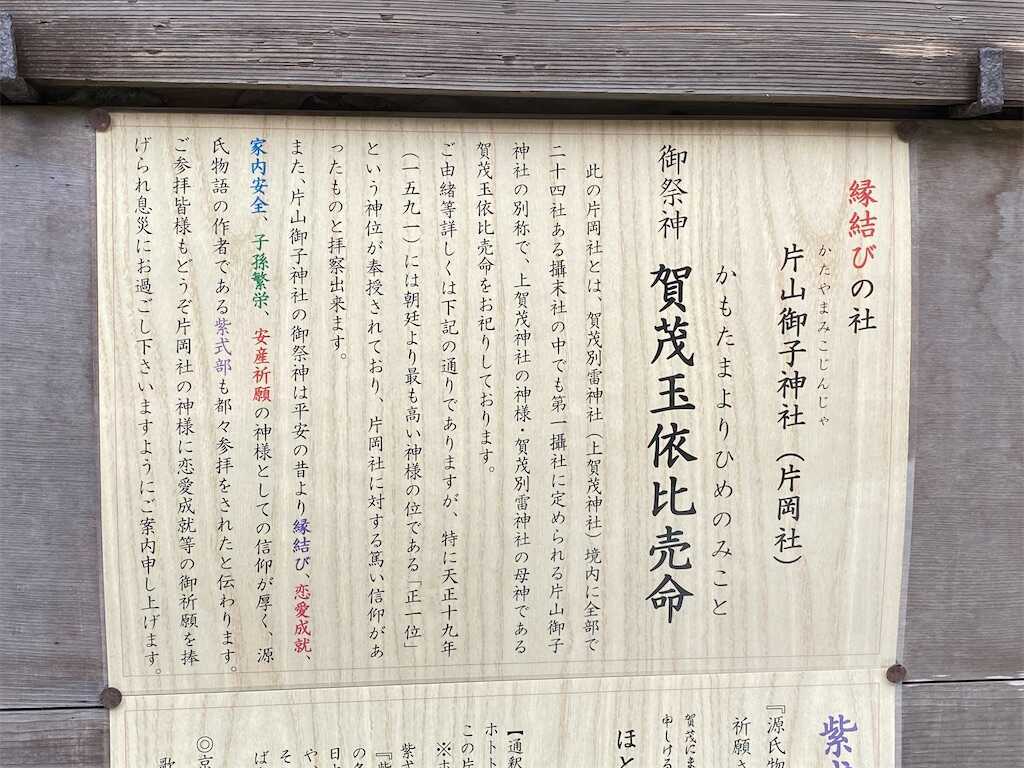 縁結びの社
かたやまみこじんじゃ
片山御子神社（片岡社）
かもたまよりひめのみこと
御祭神　賀茂玉依比売命
此の片岡社とは、賀茂別雷神社（上賀茂神社）境内に全部で
二十四社ある攝末社の中でも第一攝社に定められる片山御子
神社の別称で、上賀茂神社の神様・賀茂別雷神社の母神である
賀茂玉依比売命をお祀りしております。
ご由緒等詳しくは下記の通りでありますが、特に天正十九年
（一五九一）には朝廷より最も高い神様の位である「正一位」
という神位が奉授されており、片岡社に対する篤い信仰があ
ったものと拝察出来ます。
また、片山御子神社の御祭神は平安の昔より縁結び、恋愛成就、
家内安全、子孫繁栄、安産祈願の神様としての信仰が厚く、源
氏物語の作者である紫式部も都々参拝をされたと伝わります。
ご参拝皆様もどうぞ片岡社の神様に恋愛成就等の御祈願を捧
げられ息災にお過ごし下さいますようにご案内申し上げます。
紫
『源氏物
祈願
賀茂にま
申しける
ほ
【通釈
ホトト
この片
※ホ
紫式
『紫
の名
日
や、
そ
ば
◎京
歌